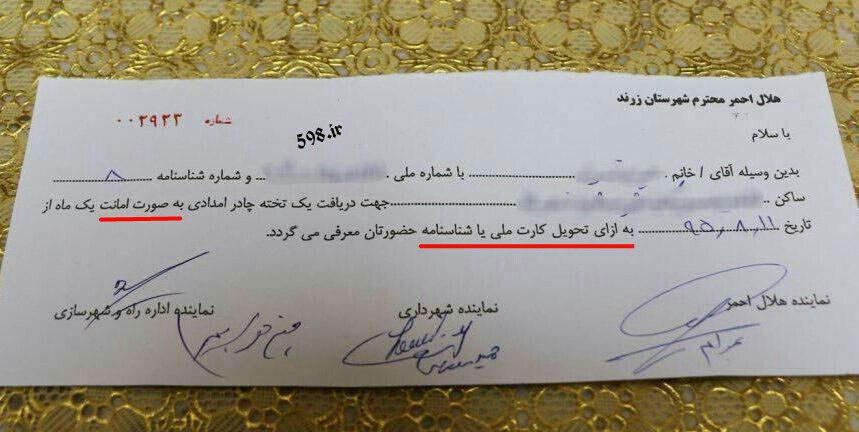 هلال احمر محترم شهرستان زرند
شماره ۰۰۲۹۲۲
598.ir
با سلام
بدین وسیله آقای / خانم . ............ با شماره ملی . ............ و شماره شناسنامه ....۸....
ساکن .. ............ جهت دریافت یک تخته چادر امدادی به صورت امانت یک ماه از
تاریخ ....۹۵،۸،۱۱.... به ازای تحویل کارت ملی یا شناسنامه حضورتان معرفی می گردد.
نماینده هلال احمر
نماینده شهرداری
نماینده اداره راه و شهرسازی